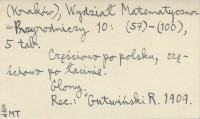 (Kraków), Wydział Matematyczno
-Przyrodniczy 10: (57)-(100),
5 tab.
Częściowo po polsku, czę-
ściowo po łacinie.
Glony.
Rec.: Gutwiński R. 1909.
MT